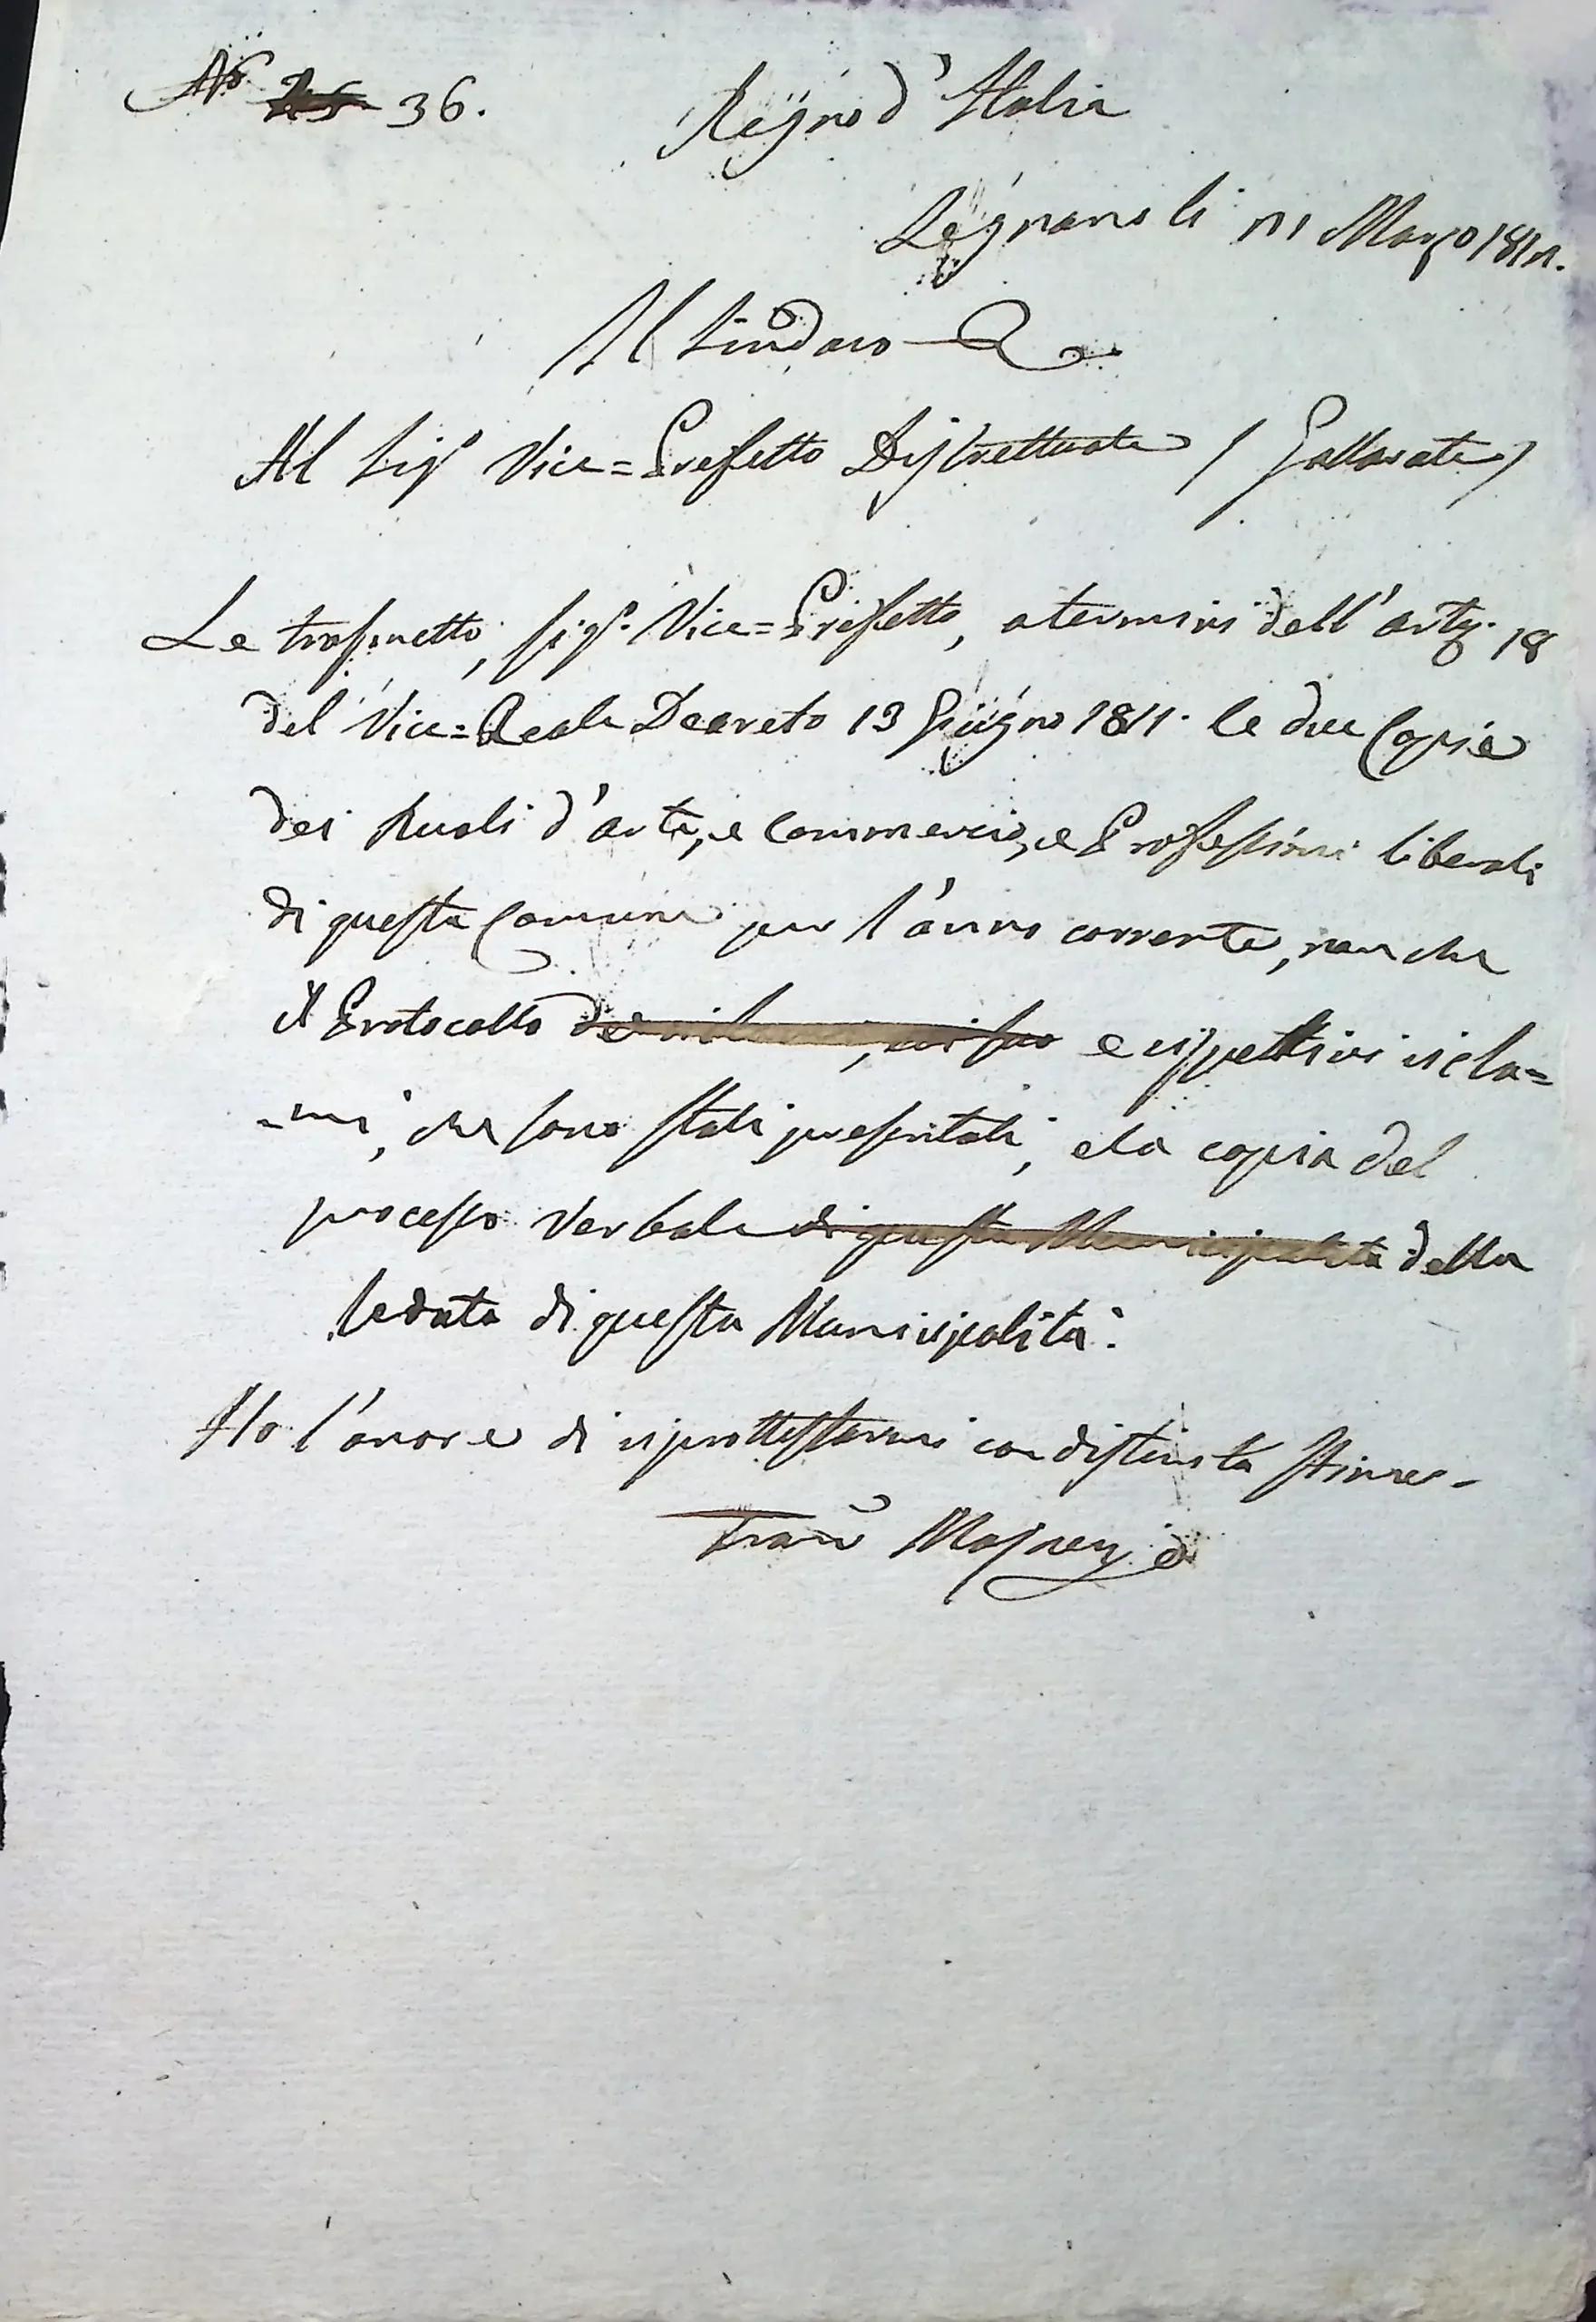 N.° 36.
Regno d'Italia
Legnano li Marzo
Il Sindaco
Al Sig.r Vice=Prefetto Distrettuale / Gallarate /
Le trasmetto, Sig.r Vice=Prefetto, a termini dell'artº. 18
del Vice=Reale Decreto 13 Giugno 1811. le due Copie
dei Ruoli d'arte, e Commercio, e Professioni liberali
di questa Comune per l'anno corrente, non che
il Protocollo e rispettivi recla=
=mi, che sono stati presentati, e la copia del
processo Verbale di questa Municipalità della
seduta di questa Municipalità.
Ho l'onore di riprottestarmi con distinta Stima